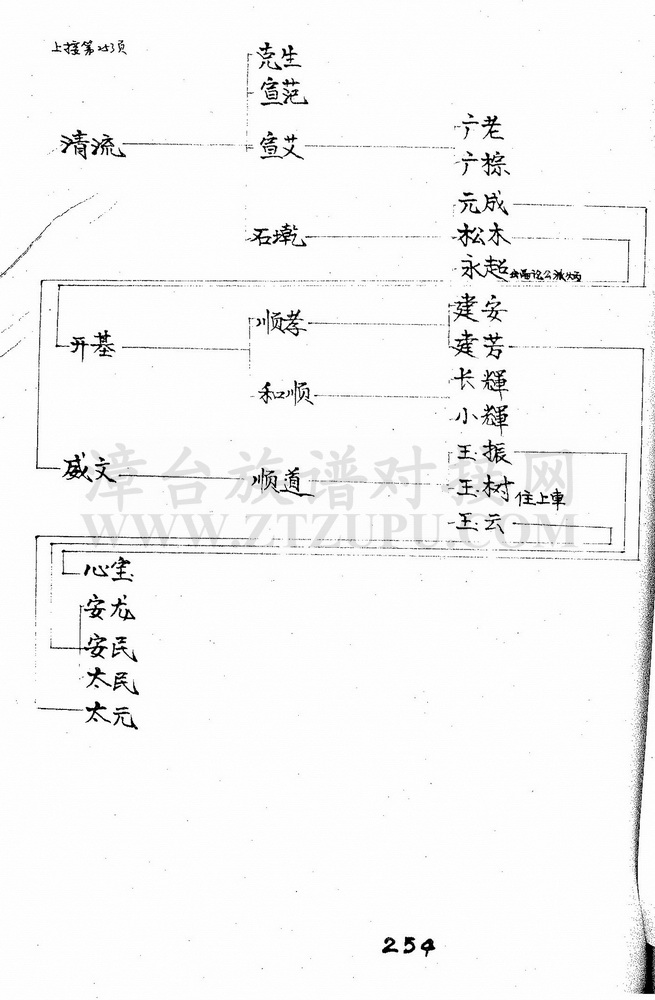 上接第253页
克生
宣范
清流 宣艾 亠老
亠棕
元成
石乾 松木
永超
开基 顺孝 建安
建芳
和顺 长輝
小輝
威文 顺道 玉振
玉材 住上車
玉云
心宝
安龙
安民
太民
太元
漳台族谱对接网
WWW.ZTZUPU.COM
254